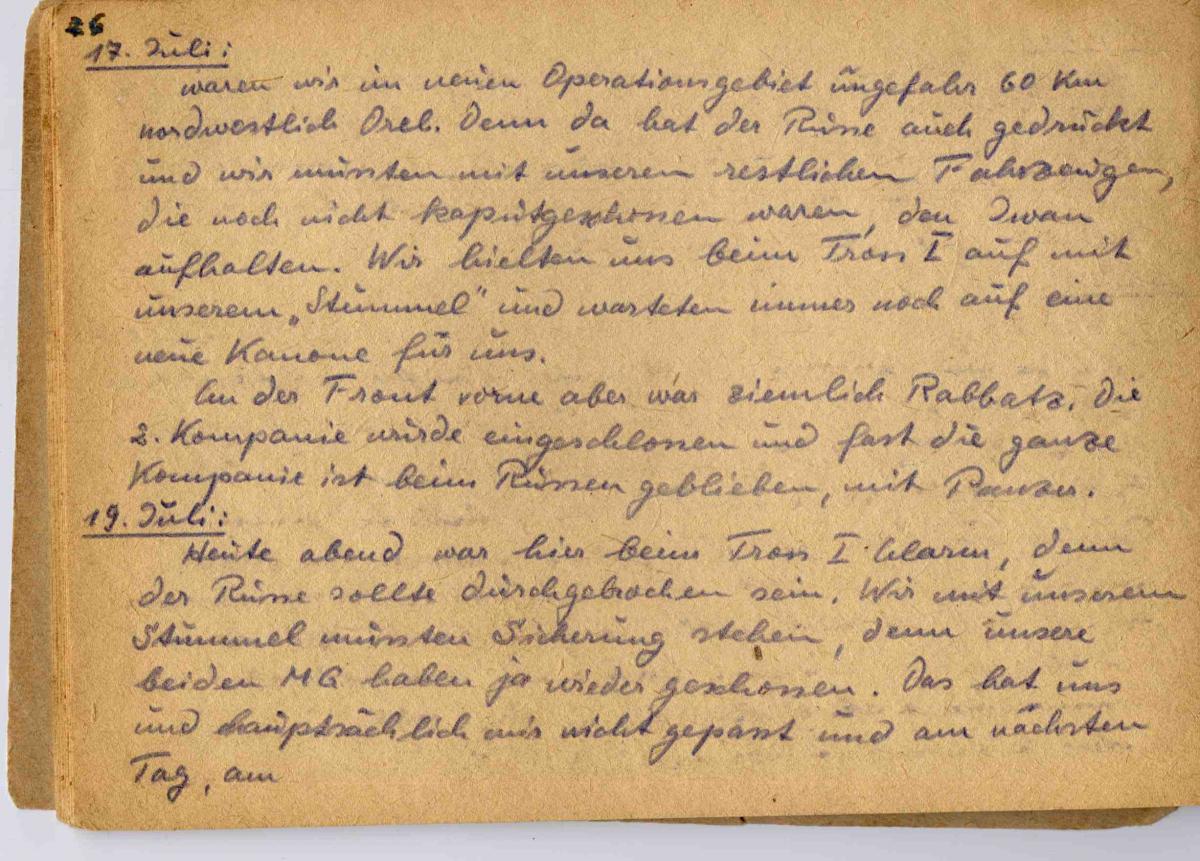 26
17. Juli:
waren wir im neuen Operationsgebiet ungefähr 60 Km
nordwestlich Orel. Denn da hat der Russe auch gedrückt
und wir mussten mit unseren restlichen Fahrzeugen,
die noch nicht kaputgeschossen waren, den Iwan
aufhalten. Wir hielten uns beim Tross I auf mit
unserem „Stummel" und warteten immer noch auf eine
neue Kanone für uns.
An der Front vorne aber war ziemlich Rabbatz. Die
2. Kompanie wurde eingeschlossen und fast die ganze
Kompanie ist beim Russen geblieben, mit Panzer.
19. Juli:
Heute abend war hier beim Tross I Alarm, denn
der Russe sollte durchgebrochen sein. Wir mit unserem
Stummel mussten Sicherung stehen, denn unsere
beiden MG haben ja wieder geschossen. Das hat uns
und hauptsächlich mir nicht gepasst und am nächsten
Tag, am